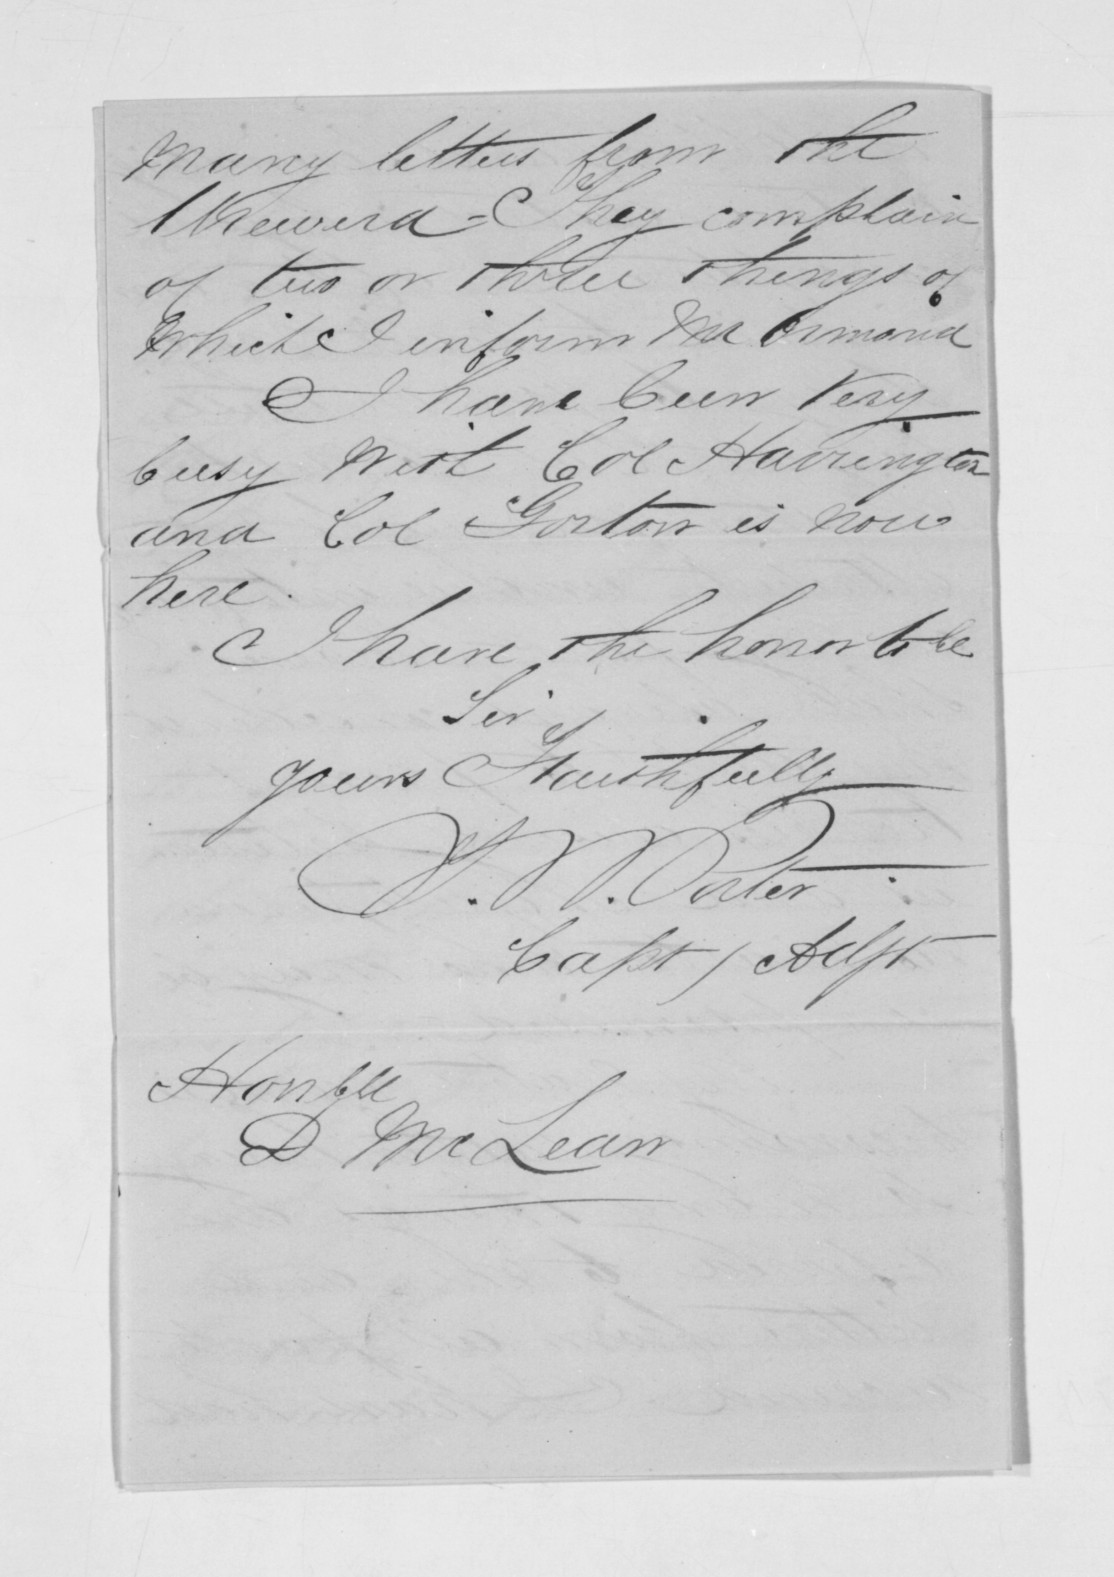 Many letters from the
Urewera - They complain
of two or three things of
which I inform Mr Ormond
I have been very
busy with Col Harrington
and Col Gorton is now
here.
I have the honor to be
Sir
yours Faithfully
T. W. Porter
Capt / Adjt
Honble
D McLean